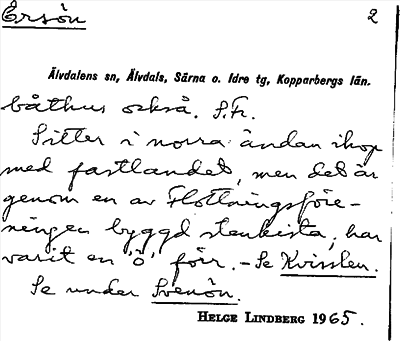 Ersön 2
Älvdalens sn, Älvdals, Särna o. Idre tg, Kopparbergs län.
båthus också. S.Fr.
Sitter i norra ändan ihop
med fastlandet, men det är
genom en av Flottningsföre-
ningen byggd stenkista, har
varit en 'ö' förr. - Se Kvisslen.
Se under Svenön.
HELGE LINDBERG 1965.